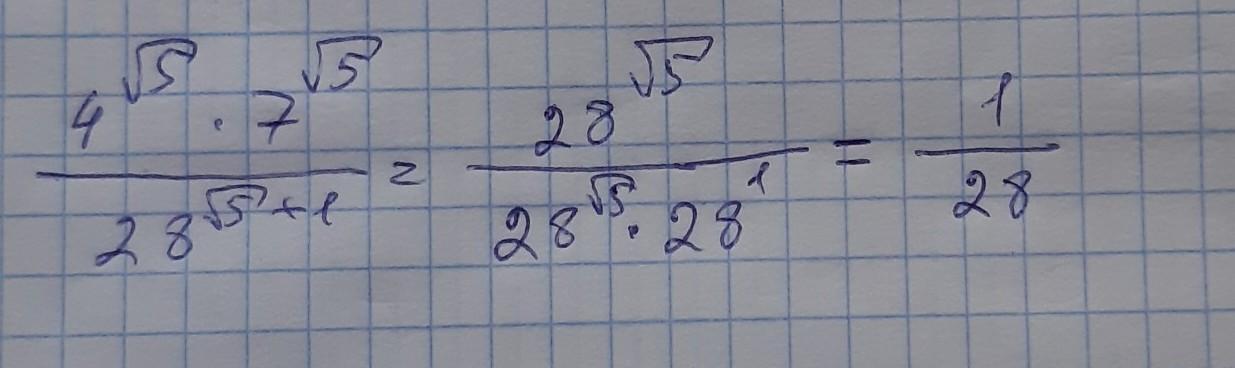 4^√5 · 7^√5 / 28^(√5+1) = 28^√5 / (28^√5 · 28^1) = 1/28